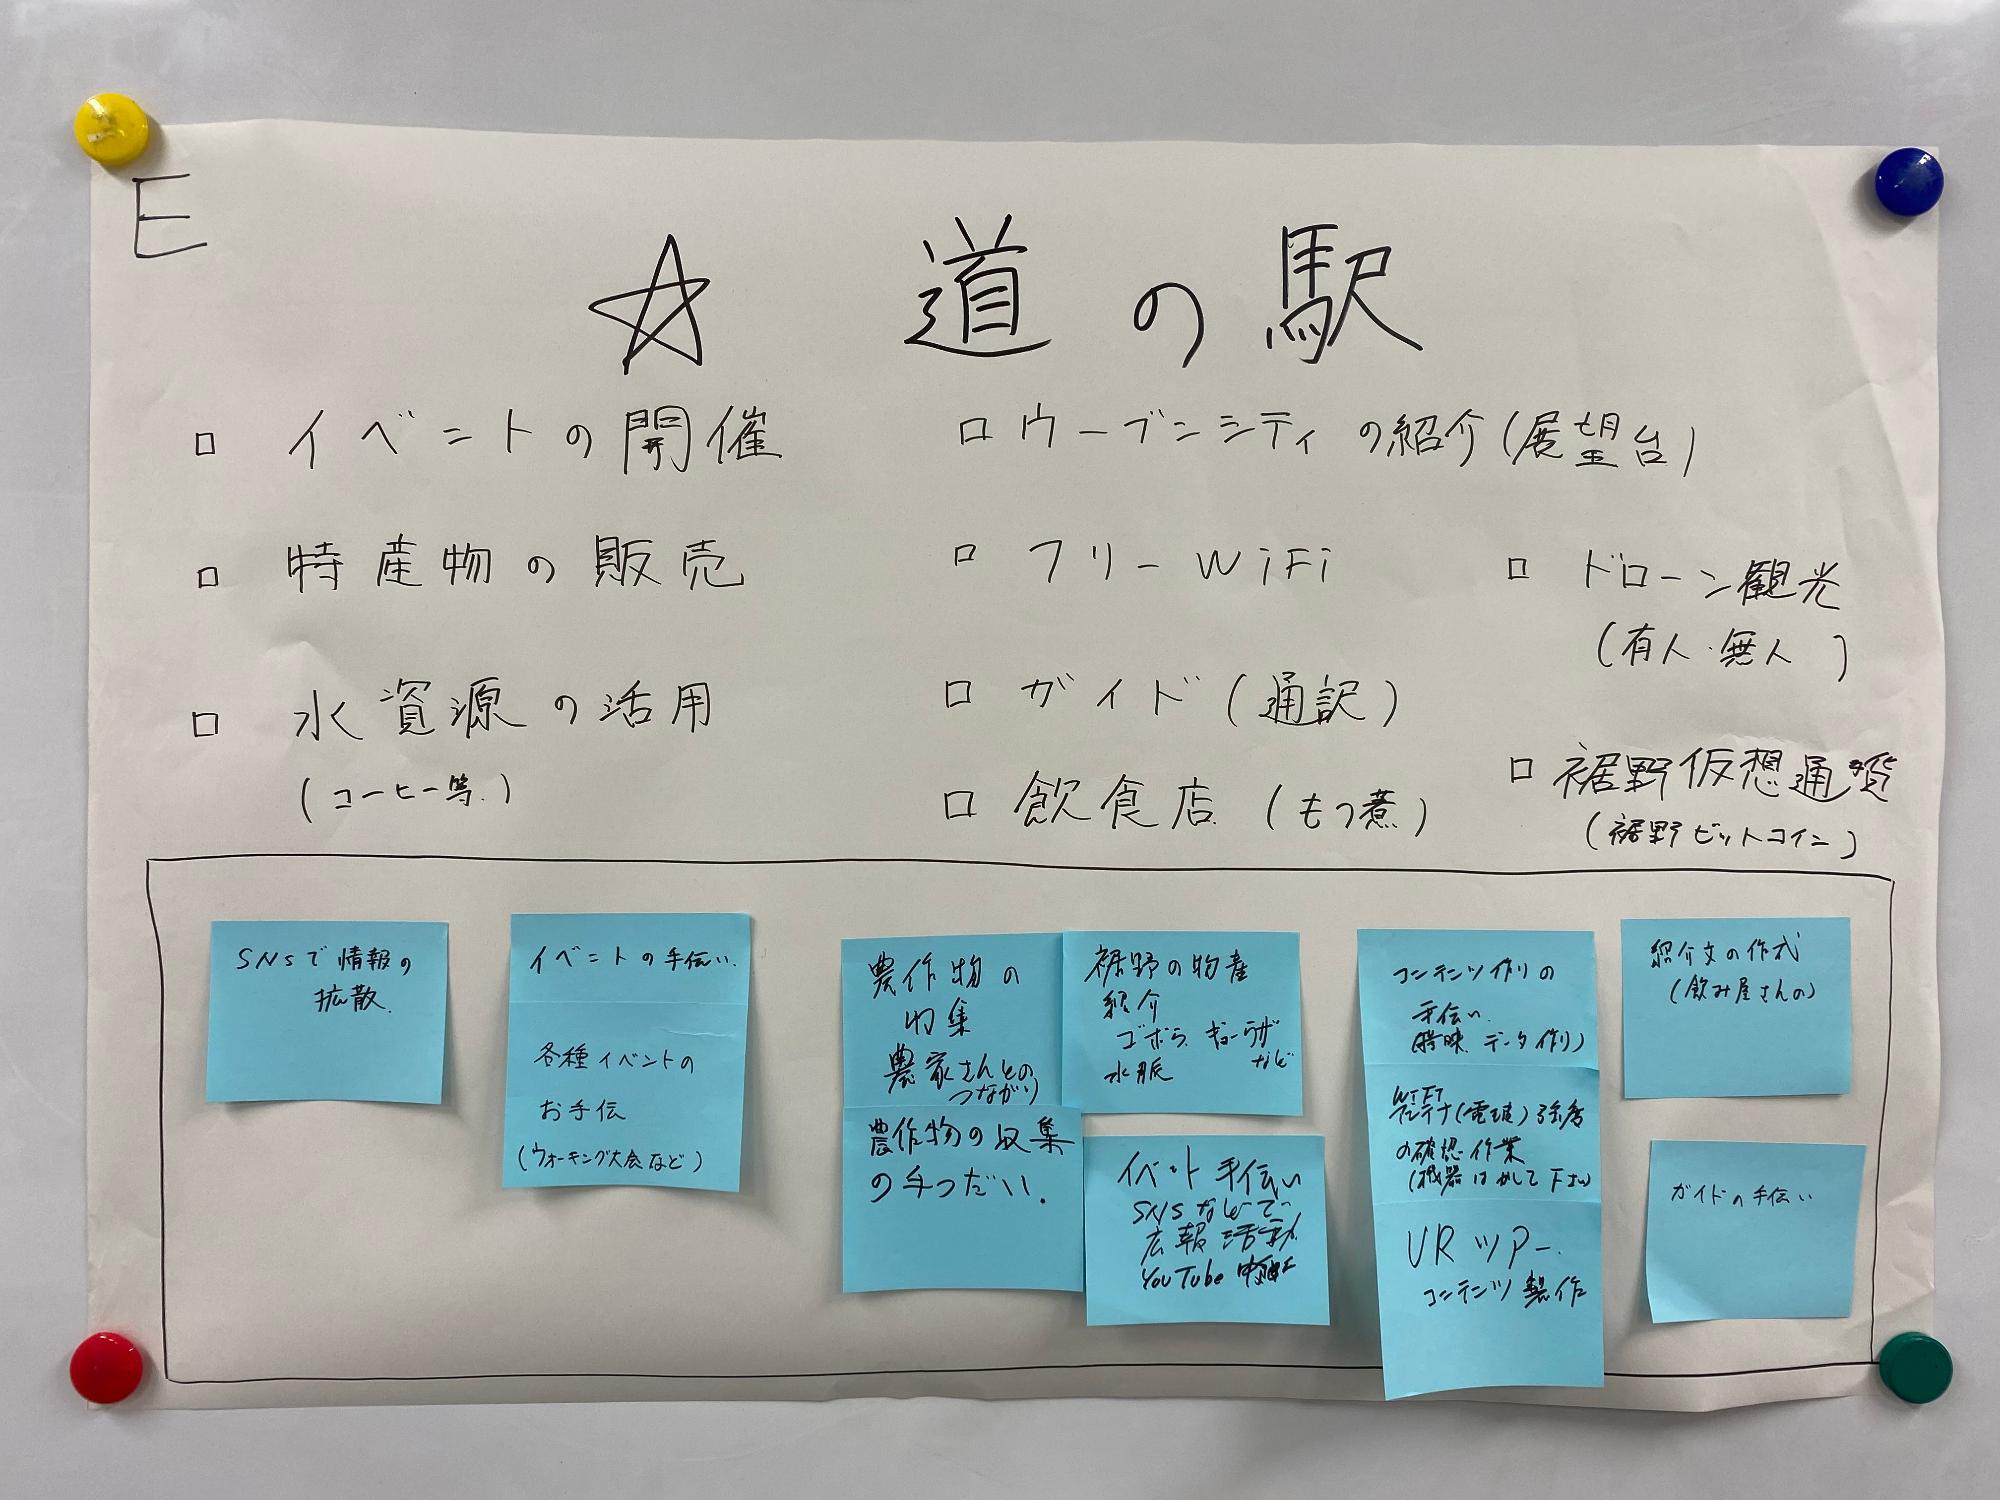 E
☆ 道の駅
□ イベントの開催
□ 特産物の販売
□ 水資源の活用
(コーヒー等.)
□ ウーブンシティの紹介(展望台)
□ フリーWiFi
□ ガイド(通訳)
□ 飲食店(もつ煮)
□ ドローン観光
(有人・無人)
□ 裾野仮想通貨
(裾野ビットコイン)
SNSで情報の
拡散.
イベントの手伝い.
各種イベントの
お手伝
(ウォーキング大会など)
農作物の
収集
農家さんとの
つながり
農作物の収集
の手つだい.
裾野の物産
紹介
ゴボラ. ギョーラザ
など
水脈
イベント手伝い
SNSなどで
広報活動
YouTube中継
コンテンツ作りの
手伝い.
データ作り)
WiFi
アンテナ(電波)強度
の確認作業
(機器はかして下さい
VRツアー.
コンテンツ製作
紹介文の作式
(飲み屋さんの)
ガイドの手伝い